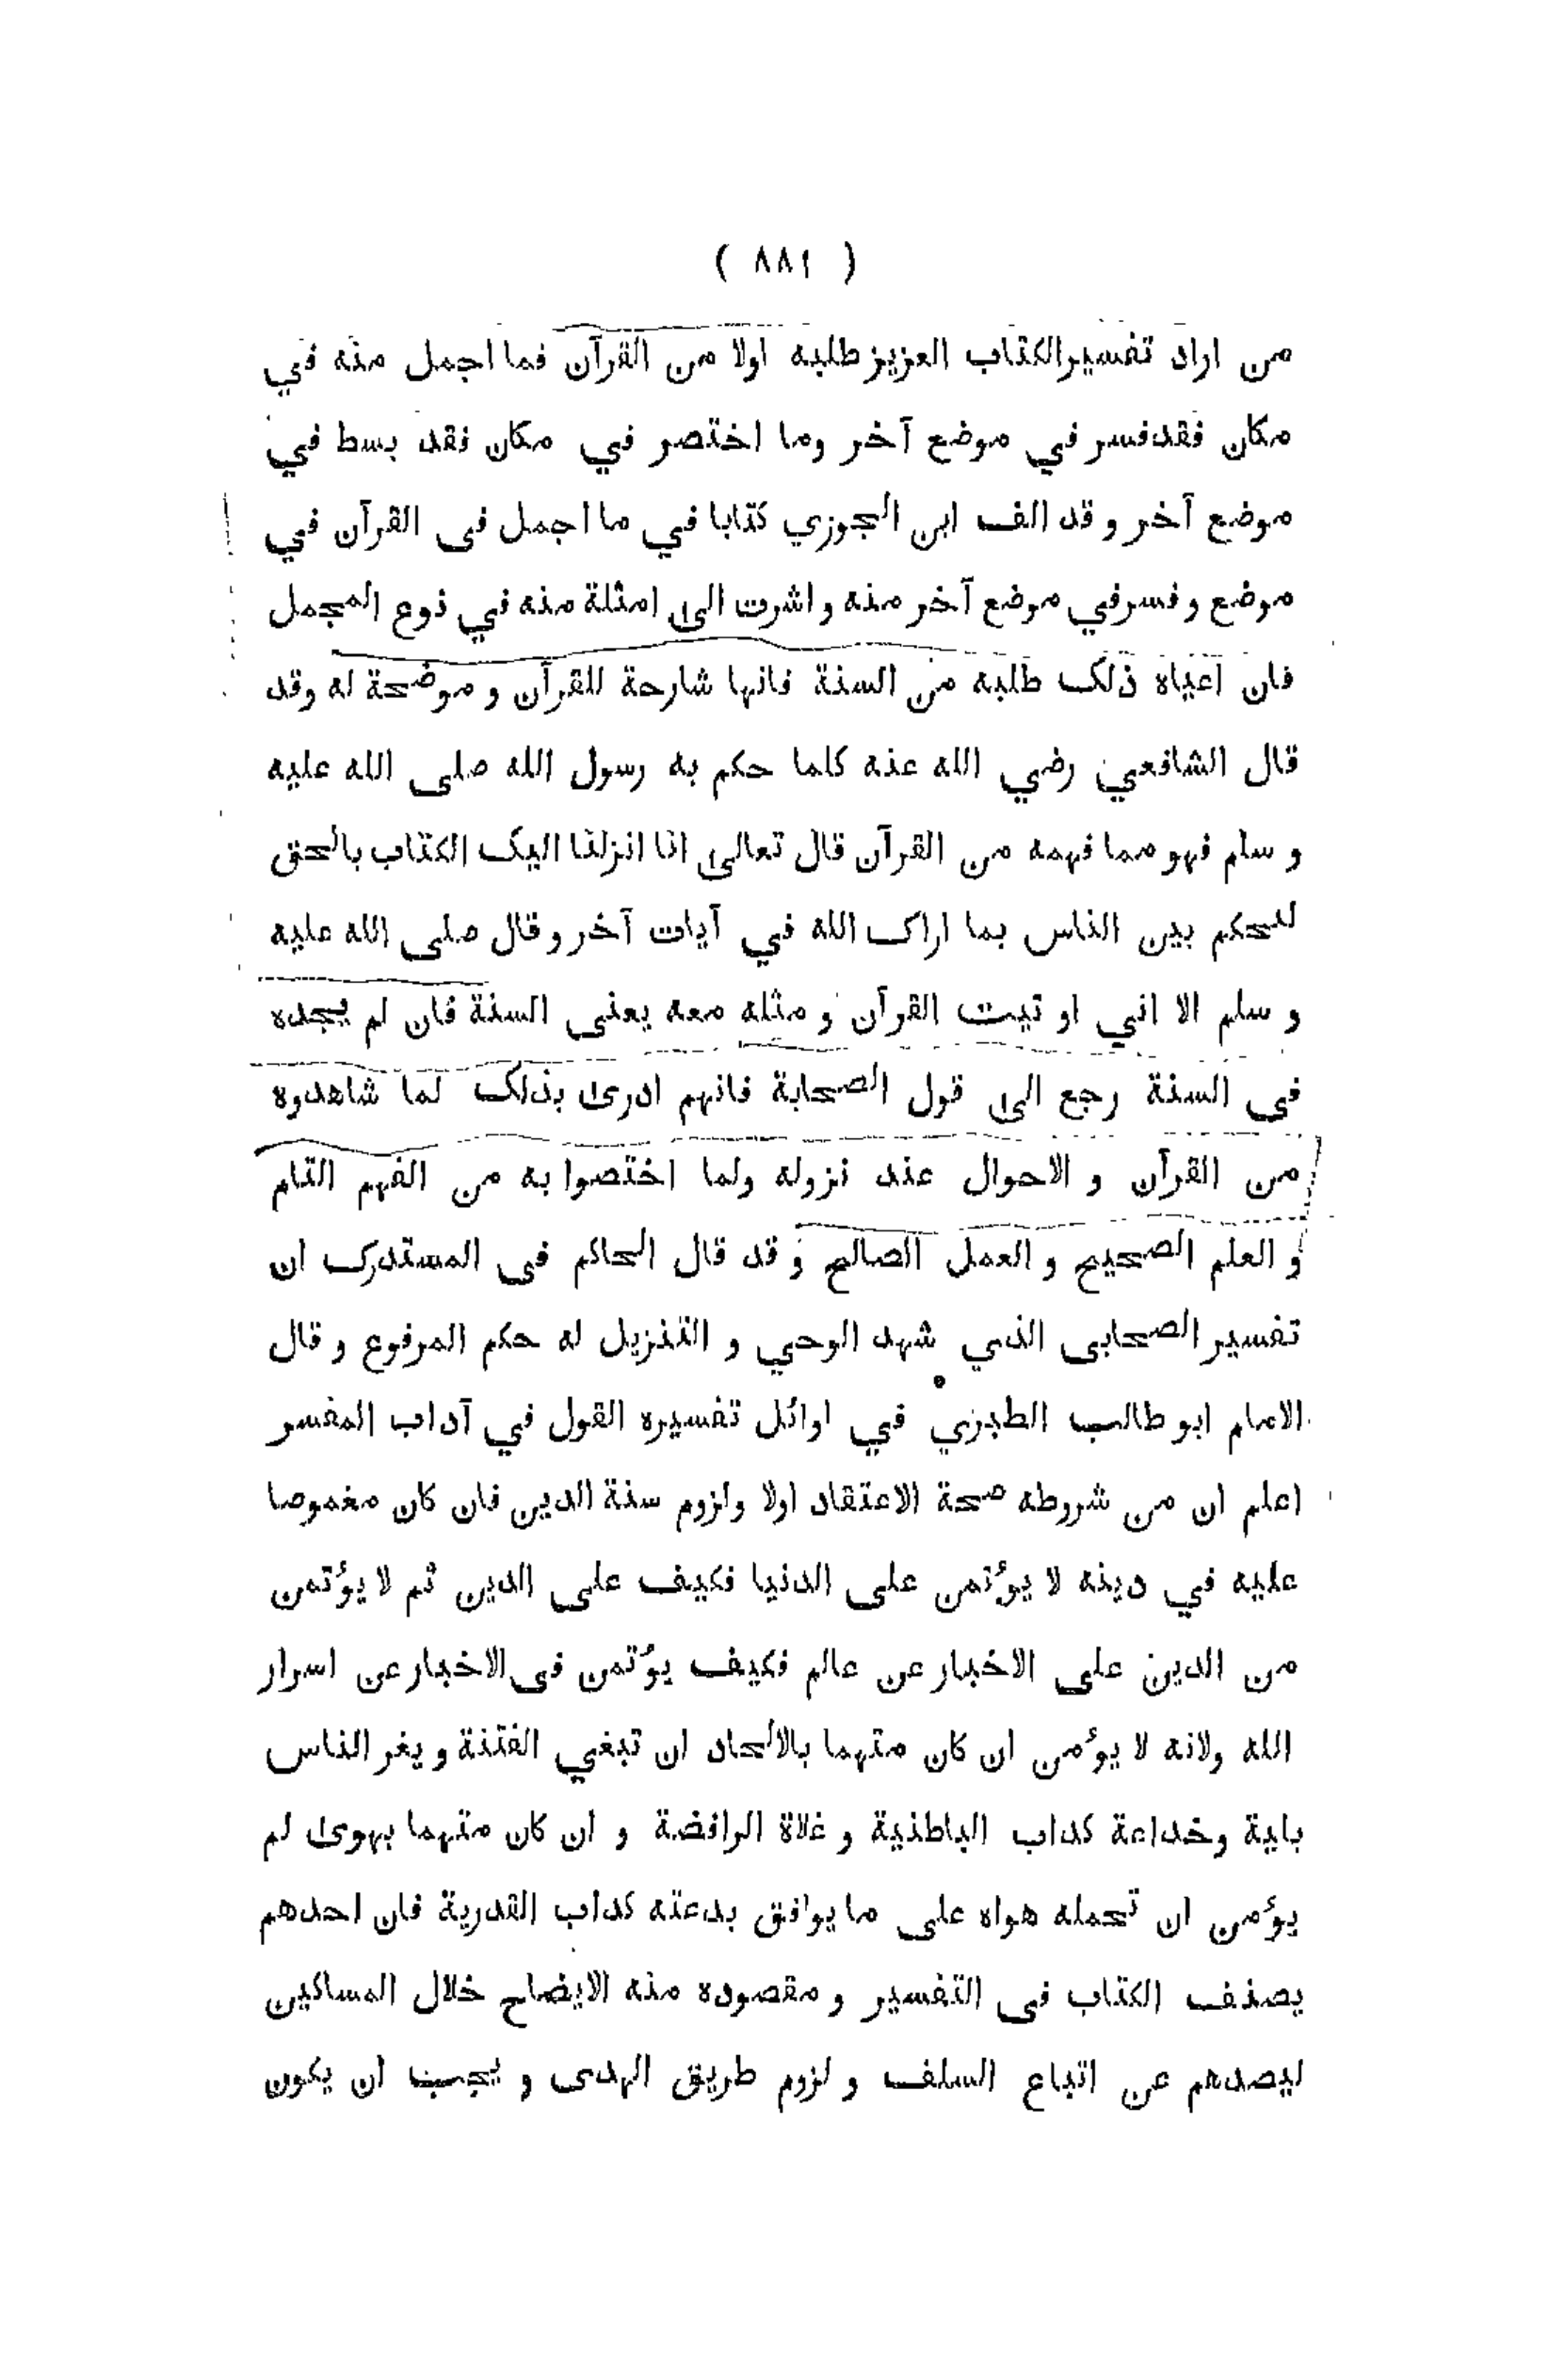 ( ٨٨١ )
من اراد تفسيرالكتاب العزيز طلبه اولا من القرآن فما اجمل منه في
مكان فقدفسر في موضع آخر وما اختصر في مكان فقد بسط في
موضع آخر و قد الف ابن الجوزي كتابا في ما اجمل فى القرآن في
موضع و فسرفي موضع آخر منه و اشرت الى امثلة منه في نوع المجمل
فان اعياه ذلك طلبه من السنة فانها شارحة للقرآن و موضحة له وقد
قال الشافعي رضي الله عنه كلما حكم به رسول الله صلى الله عليه
و سلم فهو مما فهمه من القرآن قال تعالى انا انزلنا اليك الكتاب بالحق
لتحكم بين الناس بما اراك الله في آيات آخر و قال صلى الله عليه
و سلم الا اني او تيت القرآن و مثله معه يعنى السنة فان لم يجده
فى السنة رجع الى قول الصحابة فانهم ادرى بذلك لما شاهدوه
من القرآن و الاحوال عند نزوله ولما اختصوا به من الفهم التام
و العلم الصحيح و العمل الصالح و قد قال الحاكم فى المستدرك ان
تفسير الصحابى الذي شهد الوحي و التنزيل له حكم المرفوع و قال
الامام ابو طالب الطبري في اوائل تفسيره القول في آداب المفسر
اعلم ان من شروطه صحة الاعتقاد اولا ولزوم سنة الدين فان كان مغموصا
عليه في دينه لا يؤتمن على الدنيا فكيف على الدين ثم لا يؤتمن
من الدين على الاخبار عن عالم فكيف يؤتمن فى الاخبار عن اسرار
الله ولانه لا يؤمن ان كان متهما بالالحاد ان تبغي الفتنة و يغر الناس
بلية وخداعة كداب الباطنية و غلاة الرافضة و ان كان متهما بهوى لم
يؤمن ان تحمله هواه على ما يوافق بدعته كداب القدرية فان احدهم
يصنف الكتاب فى التفسير و مقصوده منه الايضاح خلال المساكين
ليصدهم عن اتباع السلف و لزوم طريق الهدى و يجب ان يكون